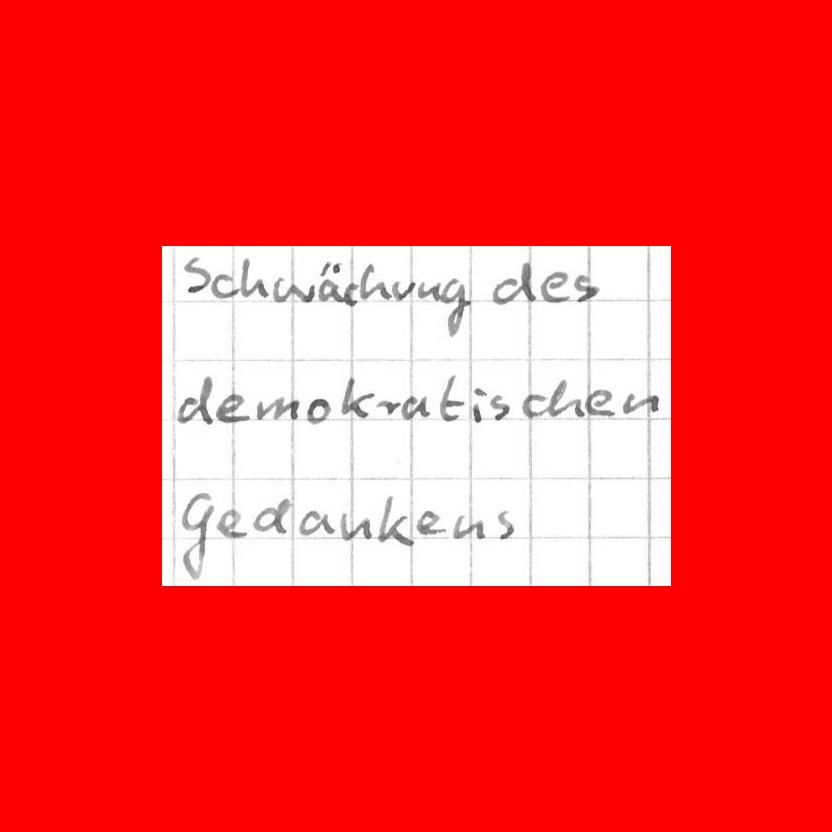 Schwächung des
demokratischen
Gedankens